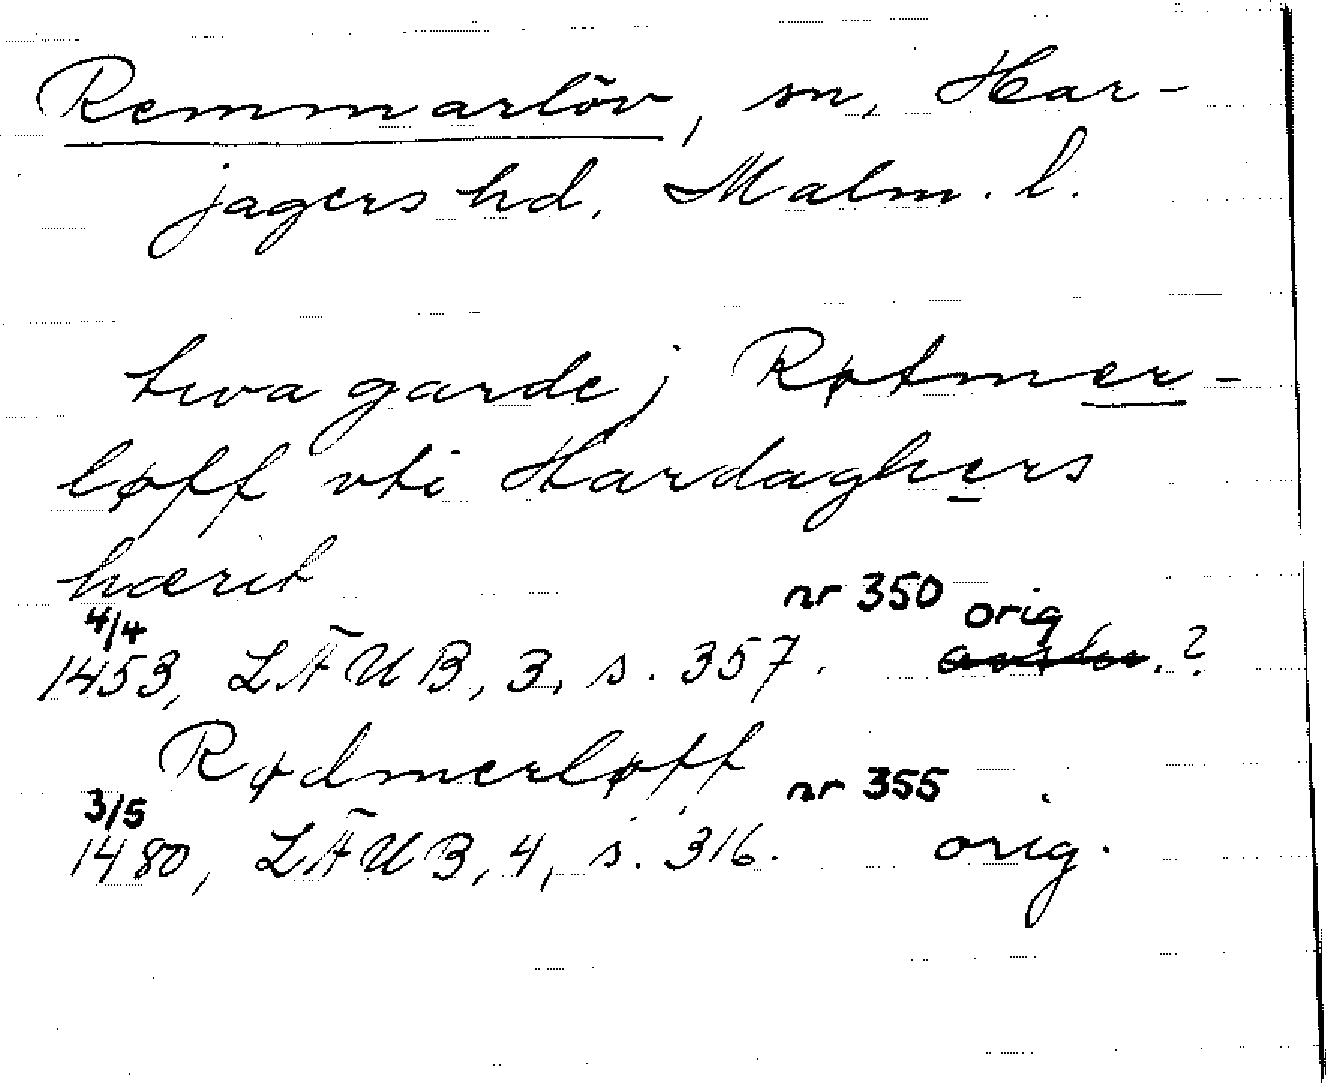 Remmarlöv, sn, Har-
jagers hd, Malm. l.
twa garde j Røtmer-
løff vti Hardaghers
hærit
nr 350 orig
4/4
1453, LÄUB, 3, s. 357. ?
Rødmerløff
3/5 nr 355
1480, LÄUB, 4, s. 316. orig.